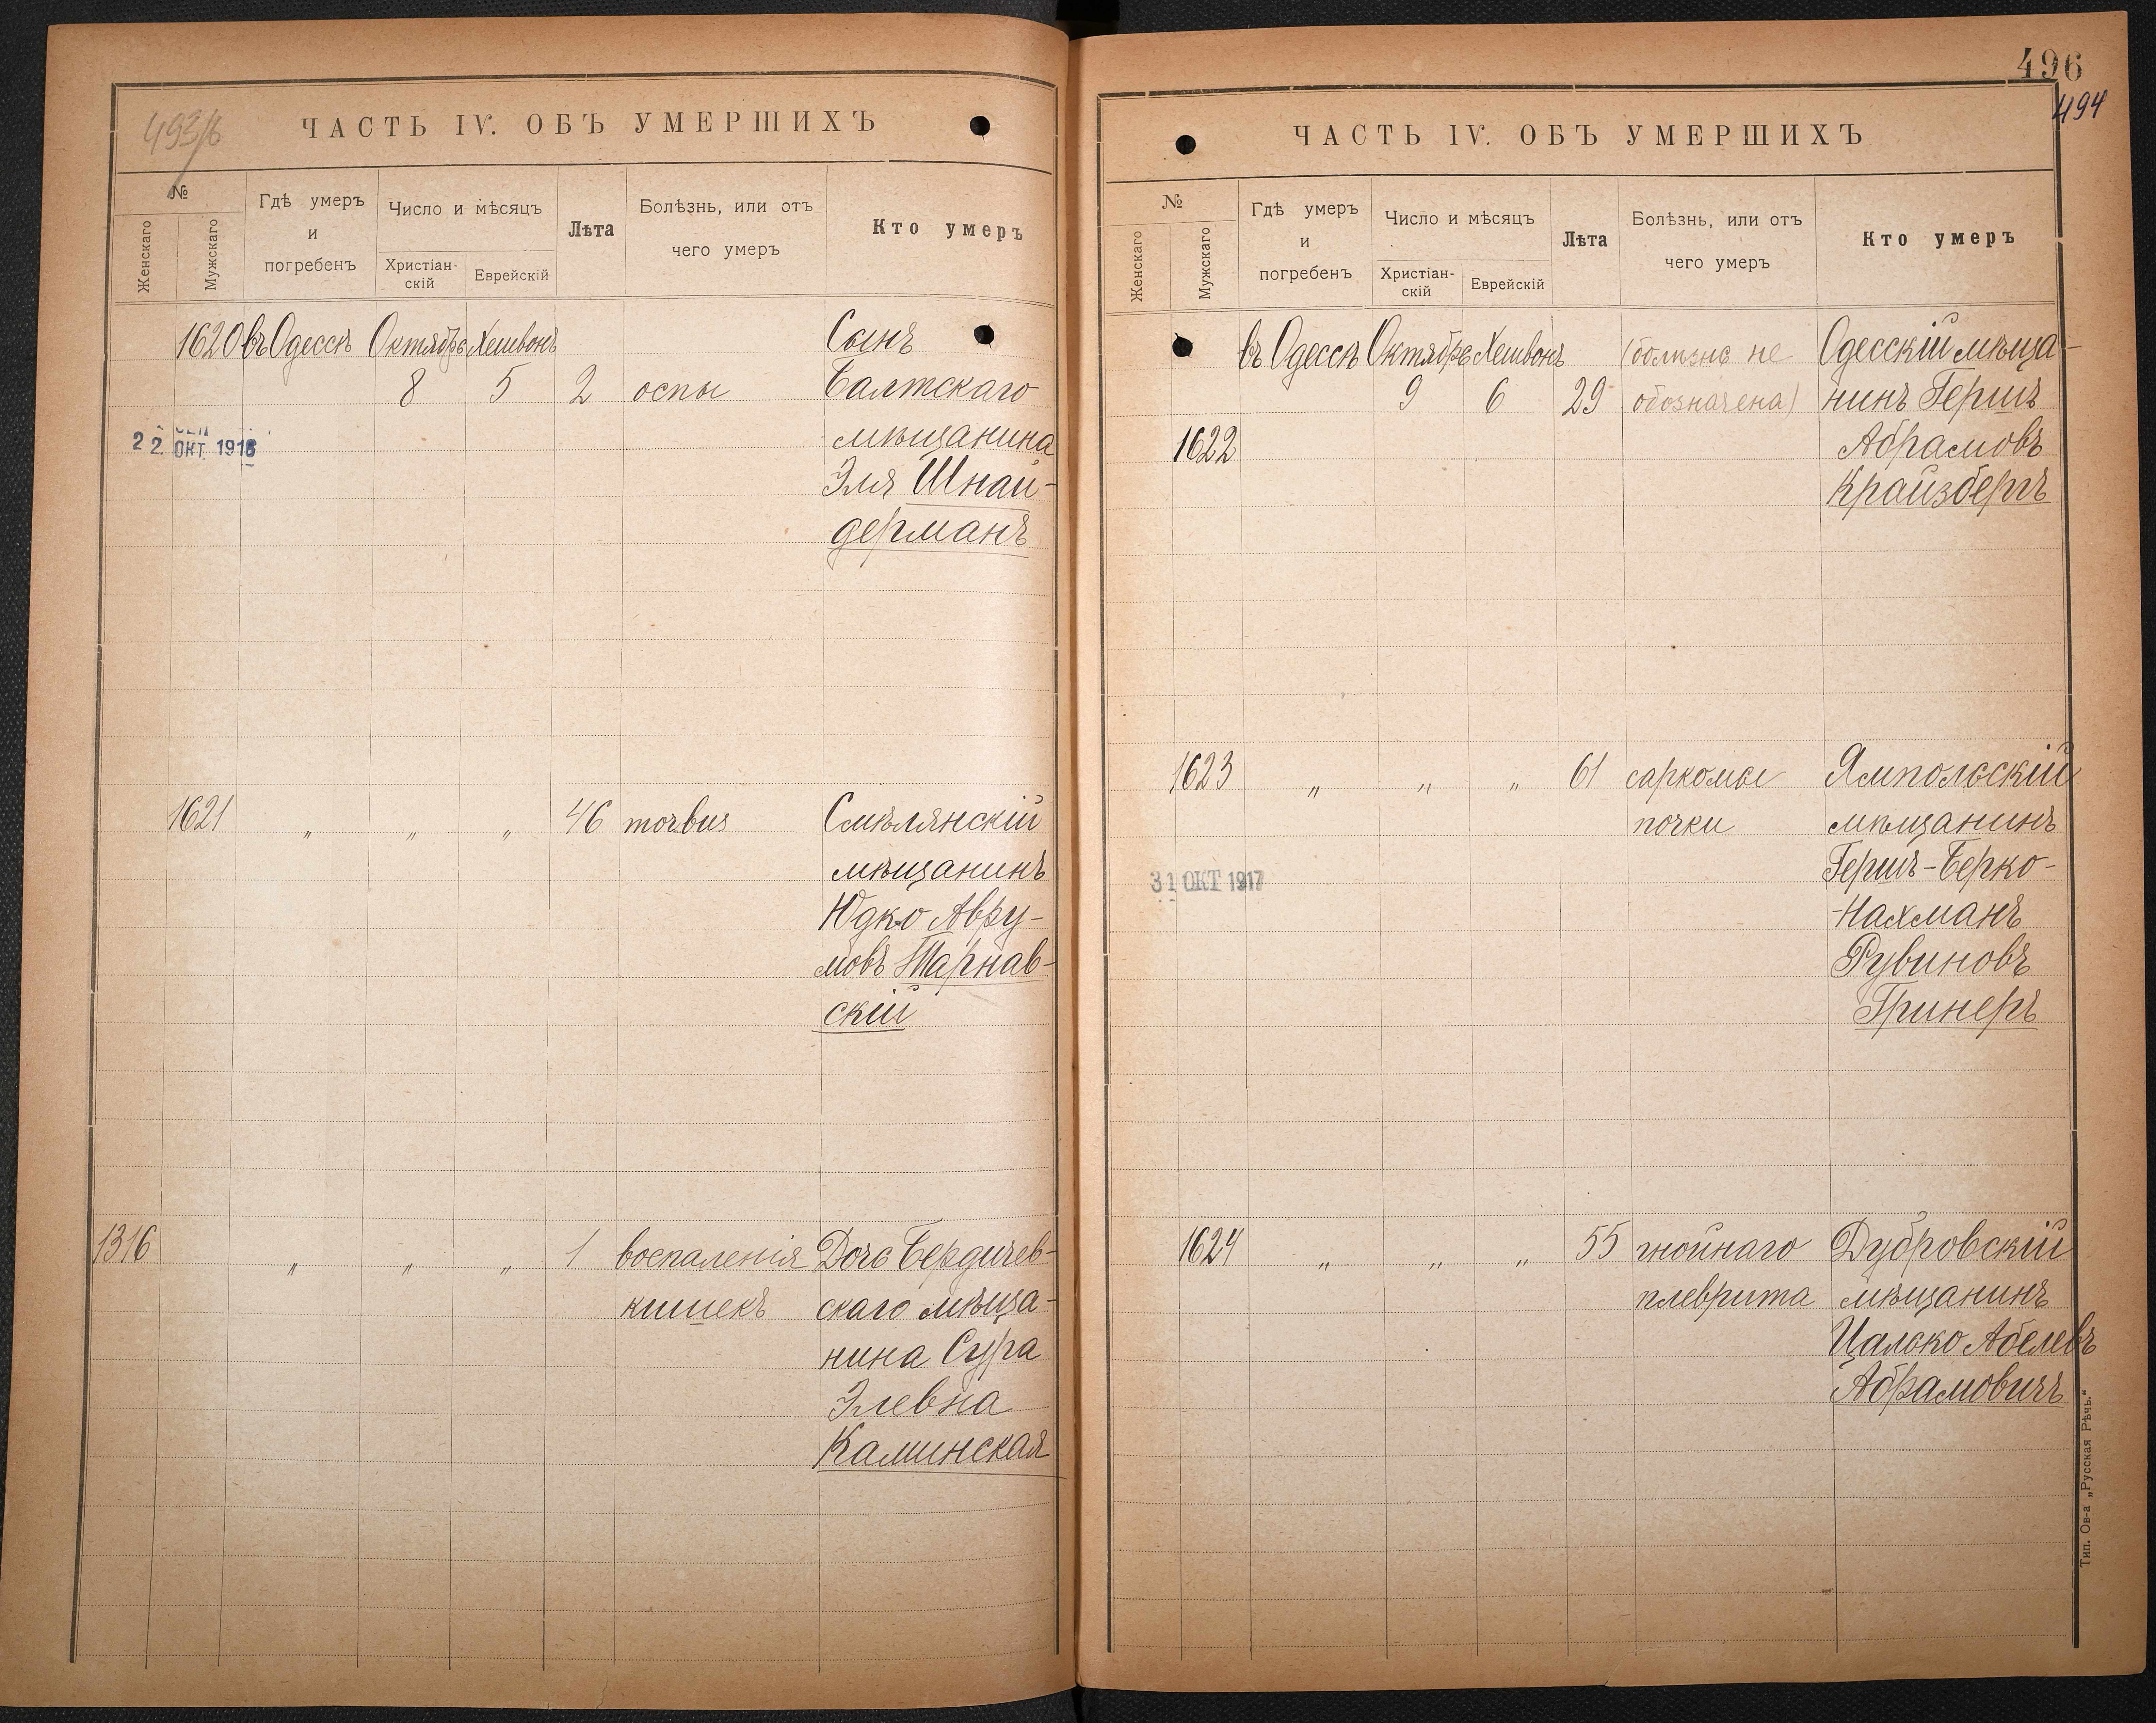 493/6
ЧАСТЬ IV. ОБЪ УМЕРШИХЪ
№
Женскаго
Мужскаго
Гдѣ умеръ
и
погребенъ
Число и мѣсяцъ
Христіан-
скій
Еврейскій
Лѣта
Болѣзнь, или отъ
чего умеръ
Кто умеръ
1620 въ Одессѣ Октябрь Хешвонъ Сынъ
8 5 2 оспы Балтскаго
22 ОКТ 1916
мѣщанина
Эля Шнай-
дерманъ
1621 " " " 46 morbus Смѣлянскій
мѣщанинъ
Юдко Авру-
мовъ Тарнав-
скій
1316 " " " 1 воспаленія Дочь Бердичев-
кишекъ скаго мѣща-
нина Сура
Элевна
Каминская
496
494
ЧАСТЬ IV. ОБЪ УМЕРШИХЪ
№
Женскаго
Мужскаго
Гдѣ умеръ
и
погребенъ
Число и мѣсяцъ
Христіан-
скій
Еврейскій
Лѣта
Болѣзнь, или отъ
чего умеръ
Кто умеръ
въ Одессѣ Октябрь Хешвонъ (болѣзнь не Одесскій мѣща-
9 6 29 обозначена) нинъ Гершъ
1622 Абрамовъ
Крайзбергъ
1623 " " " 61 саркомы Ямпольскій
почки мѣщанинъ
31 ОКТ 1917
Гершъ-Берко-
-Нахманъ
Рувиновъ
Гринеръ
1624 " " " 55 гнойнаго Дубровскій
плеврита мѣщанинъ
Цалько Абелевъ
Абрамовичъ
Тип. Ов-а „Русская Рѣчь."